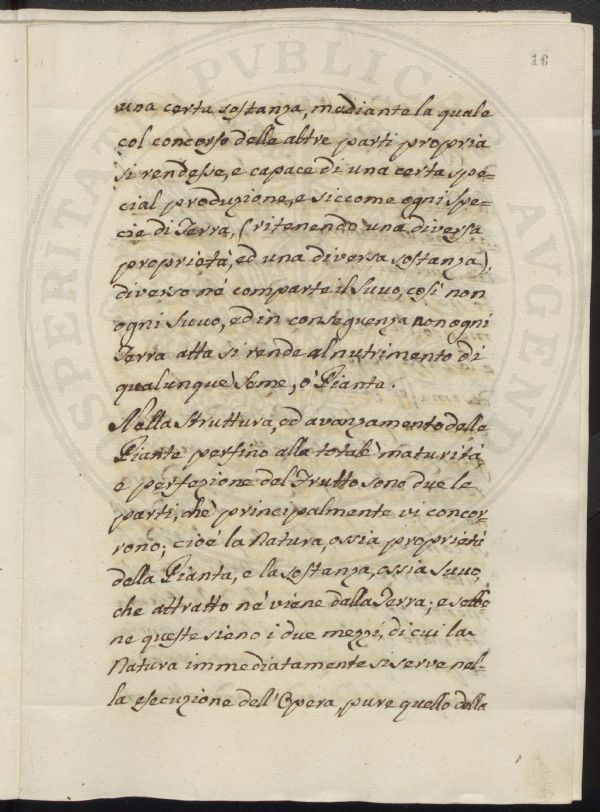 16
una certa sostanza, mediante la quale
col concorso delle altre parti propria
si rendesse, e capace di una certa spe=
cial produzione, e siccome ogni spe=
cie di Terra, (ritenendo una diversa
proprietà, ed una diversa sostanza)
diverso nè comparte il Suuo, così non
ogni Suuo, ed in conseguenza non ogni
Terra atta si rende al nutrimento di
qualunque Seme, ò Pianta.
Nella Struttura, ed avanzamento delle
Piante perfino alla totale maturità,
e perfezione del Frutto sono due le
parti, chè principalmente vi concor=
rono; cioè la Natura, ossia proprietà
della Pianta, e la sostanza, ossia Suuo,
che attratto nè viene dalla Terra; e sebbe
ne queste sieno i due mezzi, di cui la
Natura immediatamente si serve nel=
la esecuzione dell'Opera, pure quello della
PUBLICAE
AVGENDAE